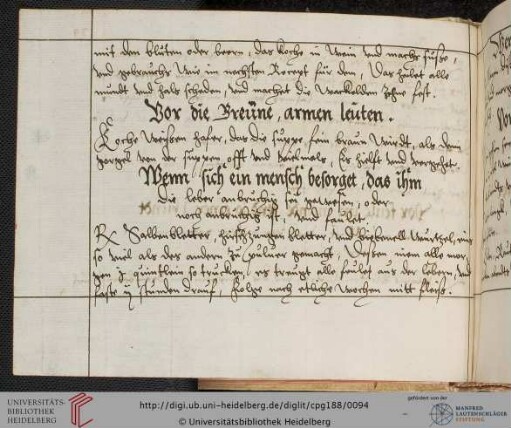 mit den blůten oder beern, das koche in Wein vnd machs süsse,
vnd gebrauchs wie im nechsten Recept für dem, Das heilet alle
mundt vnd hals schaden, vnd machet die wackellden Zehne fest.
Vor die Breüne, armen leüten.
Koche weissen hafer, das die suppe fein braun wirdt, als dem
gorgel von der suppen offt vnd vielmals, Er hilfft vnd vorgehet.
Wenn sich ein mensch besorget, das ihm
die leber anbrüchig sey gewesen, oder
noch anbrüchig ist, vnd faulet.
Rx Salbenbletter, hirschzungen bletter, vnd bibenell wurtzel, eins
so viel als des andern zu puluer gemacht, Dessen niem alle mor,,
gen j quintlein so trucken, es treugt alle feulet aus der lebern, vnd
faste ij stunden drauf, folge noch etliche wochen mitt fleiss.
UNIVERSITÄTS-
BIBLIOTHEK
HEIDELBERG
http://digi.ub.uni-heidelberg.de/diglit/cpg188/0094
© Universitätsbibliothek Heidelberg
gefördert von der
MANFRED
LAUTENSCHLÄGER
STIFTUNG